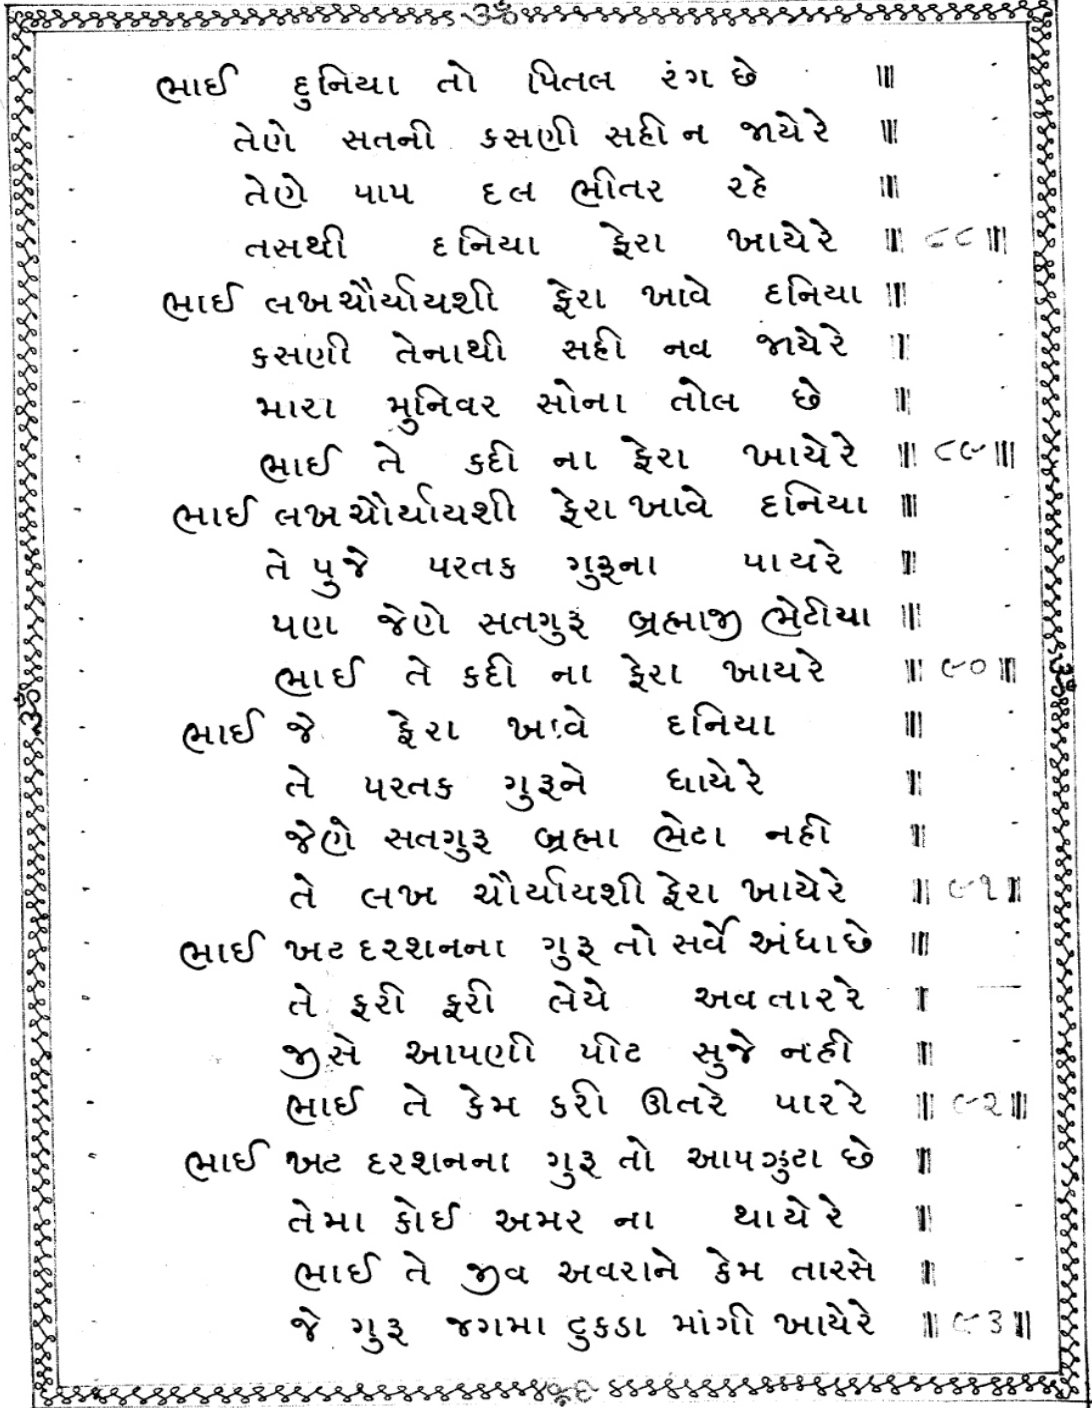 ૐ
ભાઈ દુનિયા તો પિતલ રંગ છે ॥
તેણે સતની કસણી સહી ન જાયેરે ॥
તેણે પાપ દલ ભીતર રહે ॥
તસથી દનિયા ફેરા ખાયેરે ॥ ૮૮ ॥
ભાઈ લખચૌર્યાયશી ફેરા ખાવે દનિયા ॥
કસણી તેનાથી સહી નવ જાયેરે ॥
મારા મુનિવર સોના તોલ છે ॥
ભાઈ તે કદી ના ફેરા ખાયેરે ॥ ૮૯ ॥
ભાઈ લખચૌર્યાયશી ફેરા ખાવે દનિયા ॥
તે પુજે પરતક ગુરૂના પાયરે ॥
પણ જેણે સતગુરૂ બ્રહ્માજી ભેટીયા ॥
ભાઈ તે કદી ના ફેરા ખાયરે ॥ ૯૦ ॥
ભાઈ જે ફેરા ખાવે દનિયા ॥
તે પરતક ગુરૂને ધાયેરે ॥
જેણે સતગુરૂ બ્રહ્મા ભેટા નહી ॥
તે લખ ચૌર્યાયશી ફેરા ખાયેરે ॥ ૯૧ ॥
ભાઈ ખટ દરશનના ગુરૂ તો સર્વે અંધા છે ॥
તે ફરી ફરી લેયે અવતારરે ॥
જીસે આપણી પીટ સુજે નહી ॥
ભાઈ તે કેમ કરી ઊતરે પારરે ॥ ૯૨ ॥
ભાઈ ખટ દરશનના ગુરૂ તો આપ ઝુટા છે ॥
તેમા કોઈ અમર ના થાયેરે ॥
ભાઈ તે જીવ અવરાને કેમ તારસે ॥
જે ગુરૂ જગમા ટુકડા માંગી ખાયેરે ॥ ૯૩ ॥
ૐ